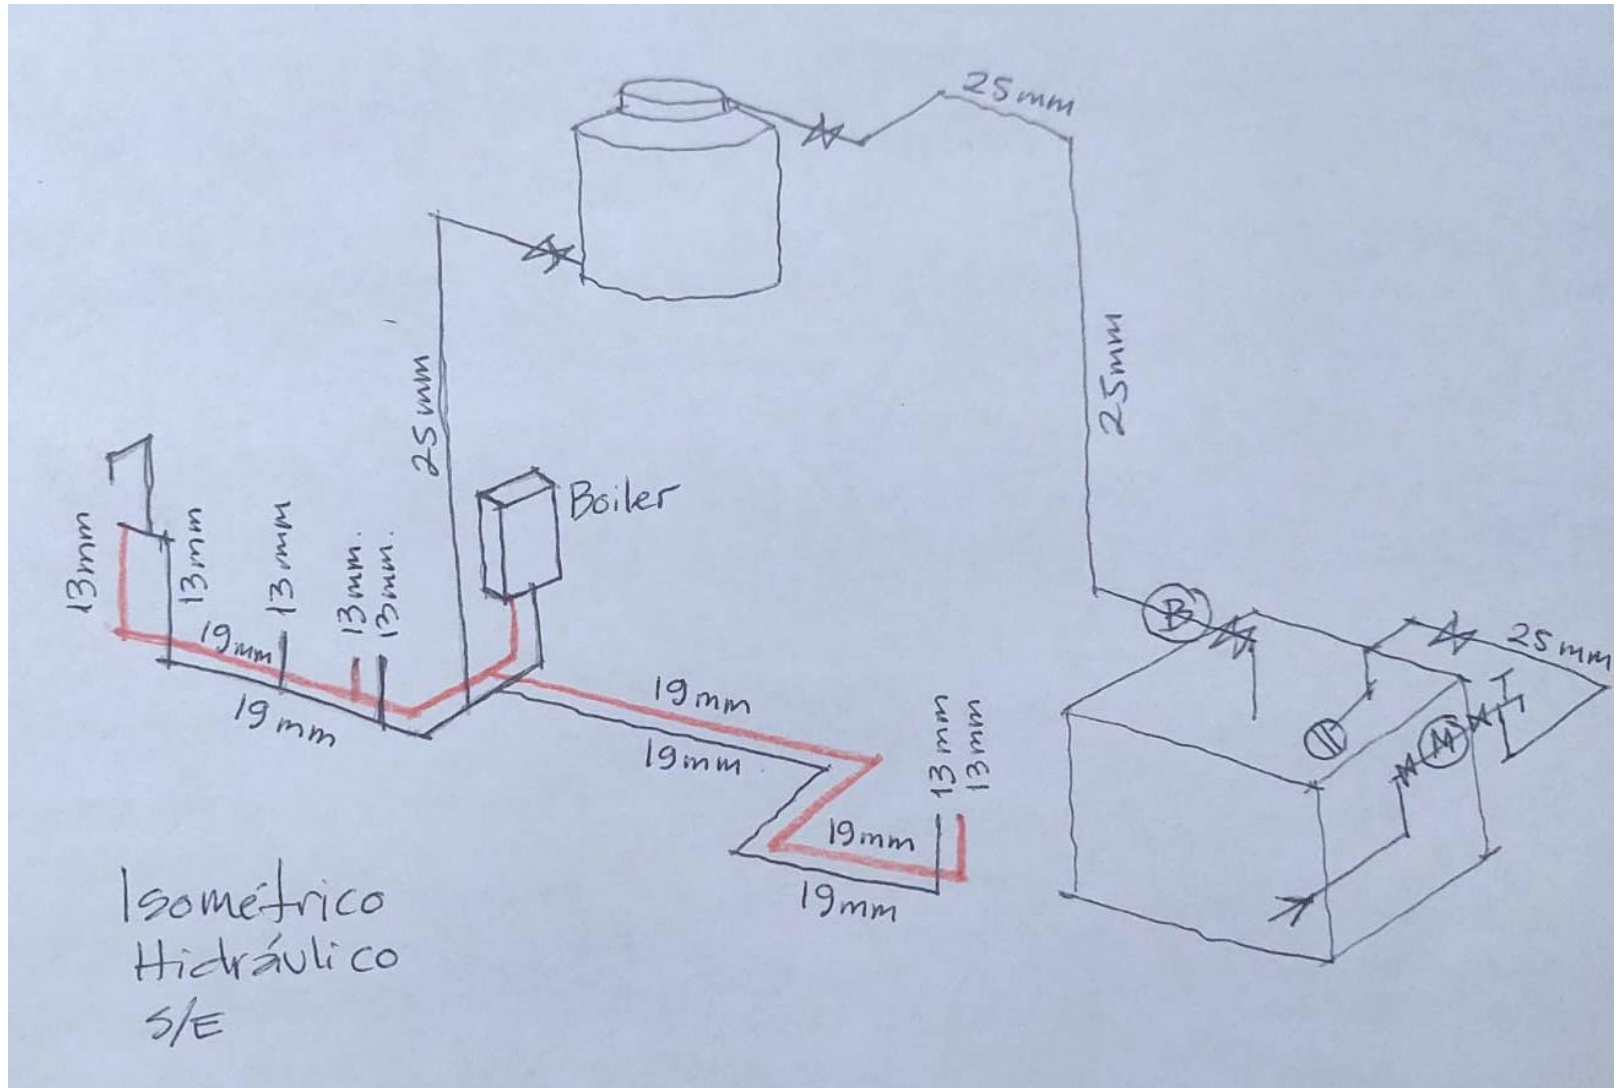 25mm
25mm
25mm
Boiler
13mm
13mm
13mm
13mm.
13mm.
B
25mm
19mm
19mm
19mm
19mm
13mm
13mm
M
19mm
19mm
Isométrico
Hidráulico
S/E